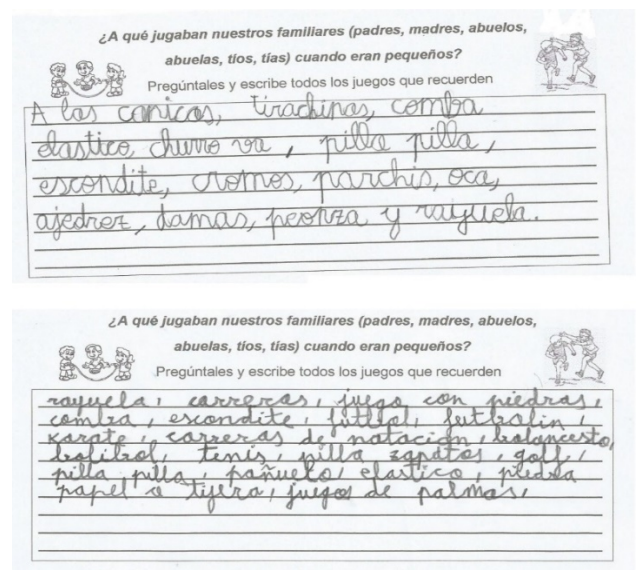 ¿A qué jugaban nuestros familiares (padres, madres, abuelos,
abuelas, tíos, tías) cuando eran pequeños?
Pregúntales y escribe todos los juegos que recuerden
A las canicas, tirachinas, comba
elastico, churro va, pilla pilla,
escondite, cromos, parchis, oca,
ajedrez, damas, peonza y rayuela.
¿A qué jugaban nuestros familiares (padres, madres, abuelos,
abuelas, tíos, tías) cuando eran pequeños?
Pregúntales y escribe todos los juegos que recuerden
rayuela, carreras, juego con piedras,
comba, escondite, futbol, futbolin,
karate, carreras de natación, baloncesto,
bolibol, tenis, pilla zapatos, golf,
pilla pilla, pañuelo, elastico, piedra
papel o tijera, juegos de palmas,